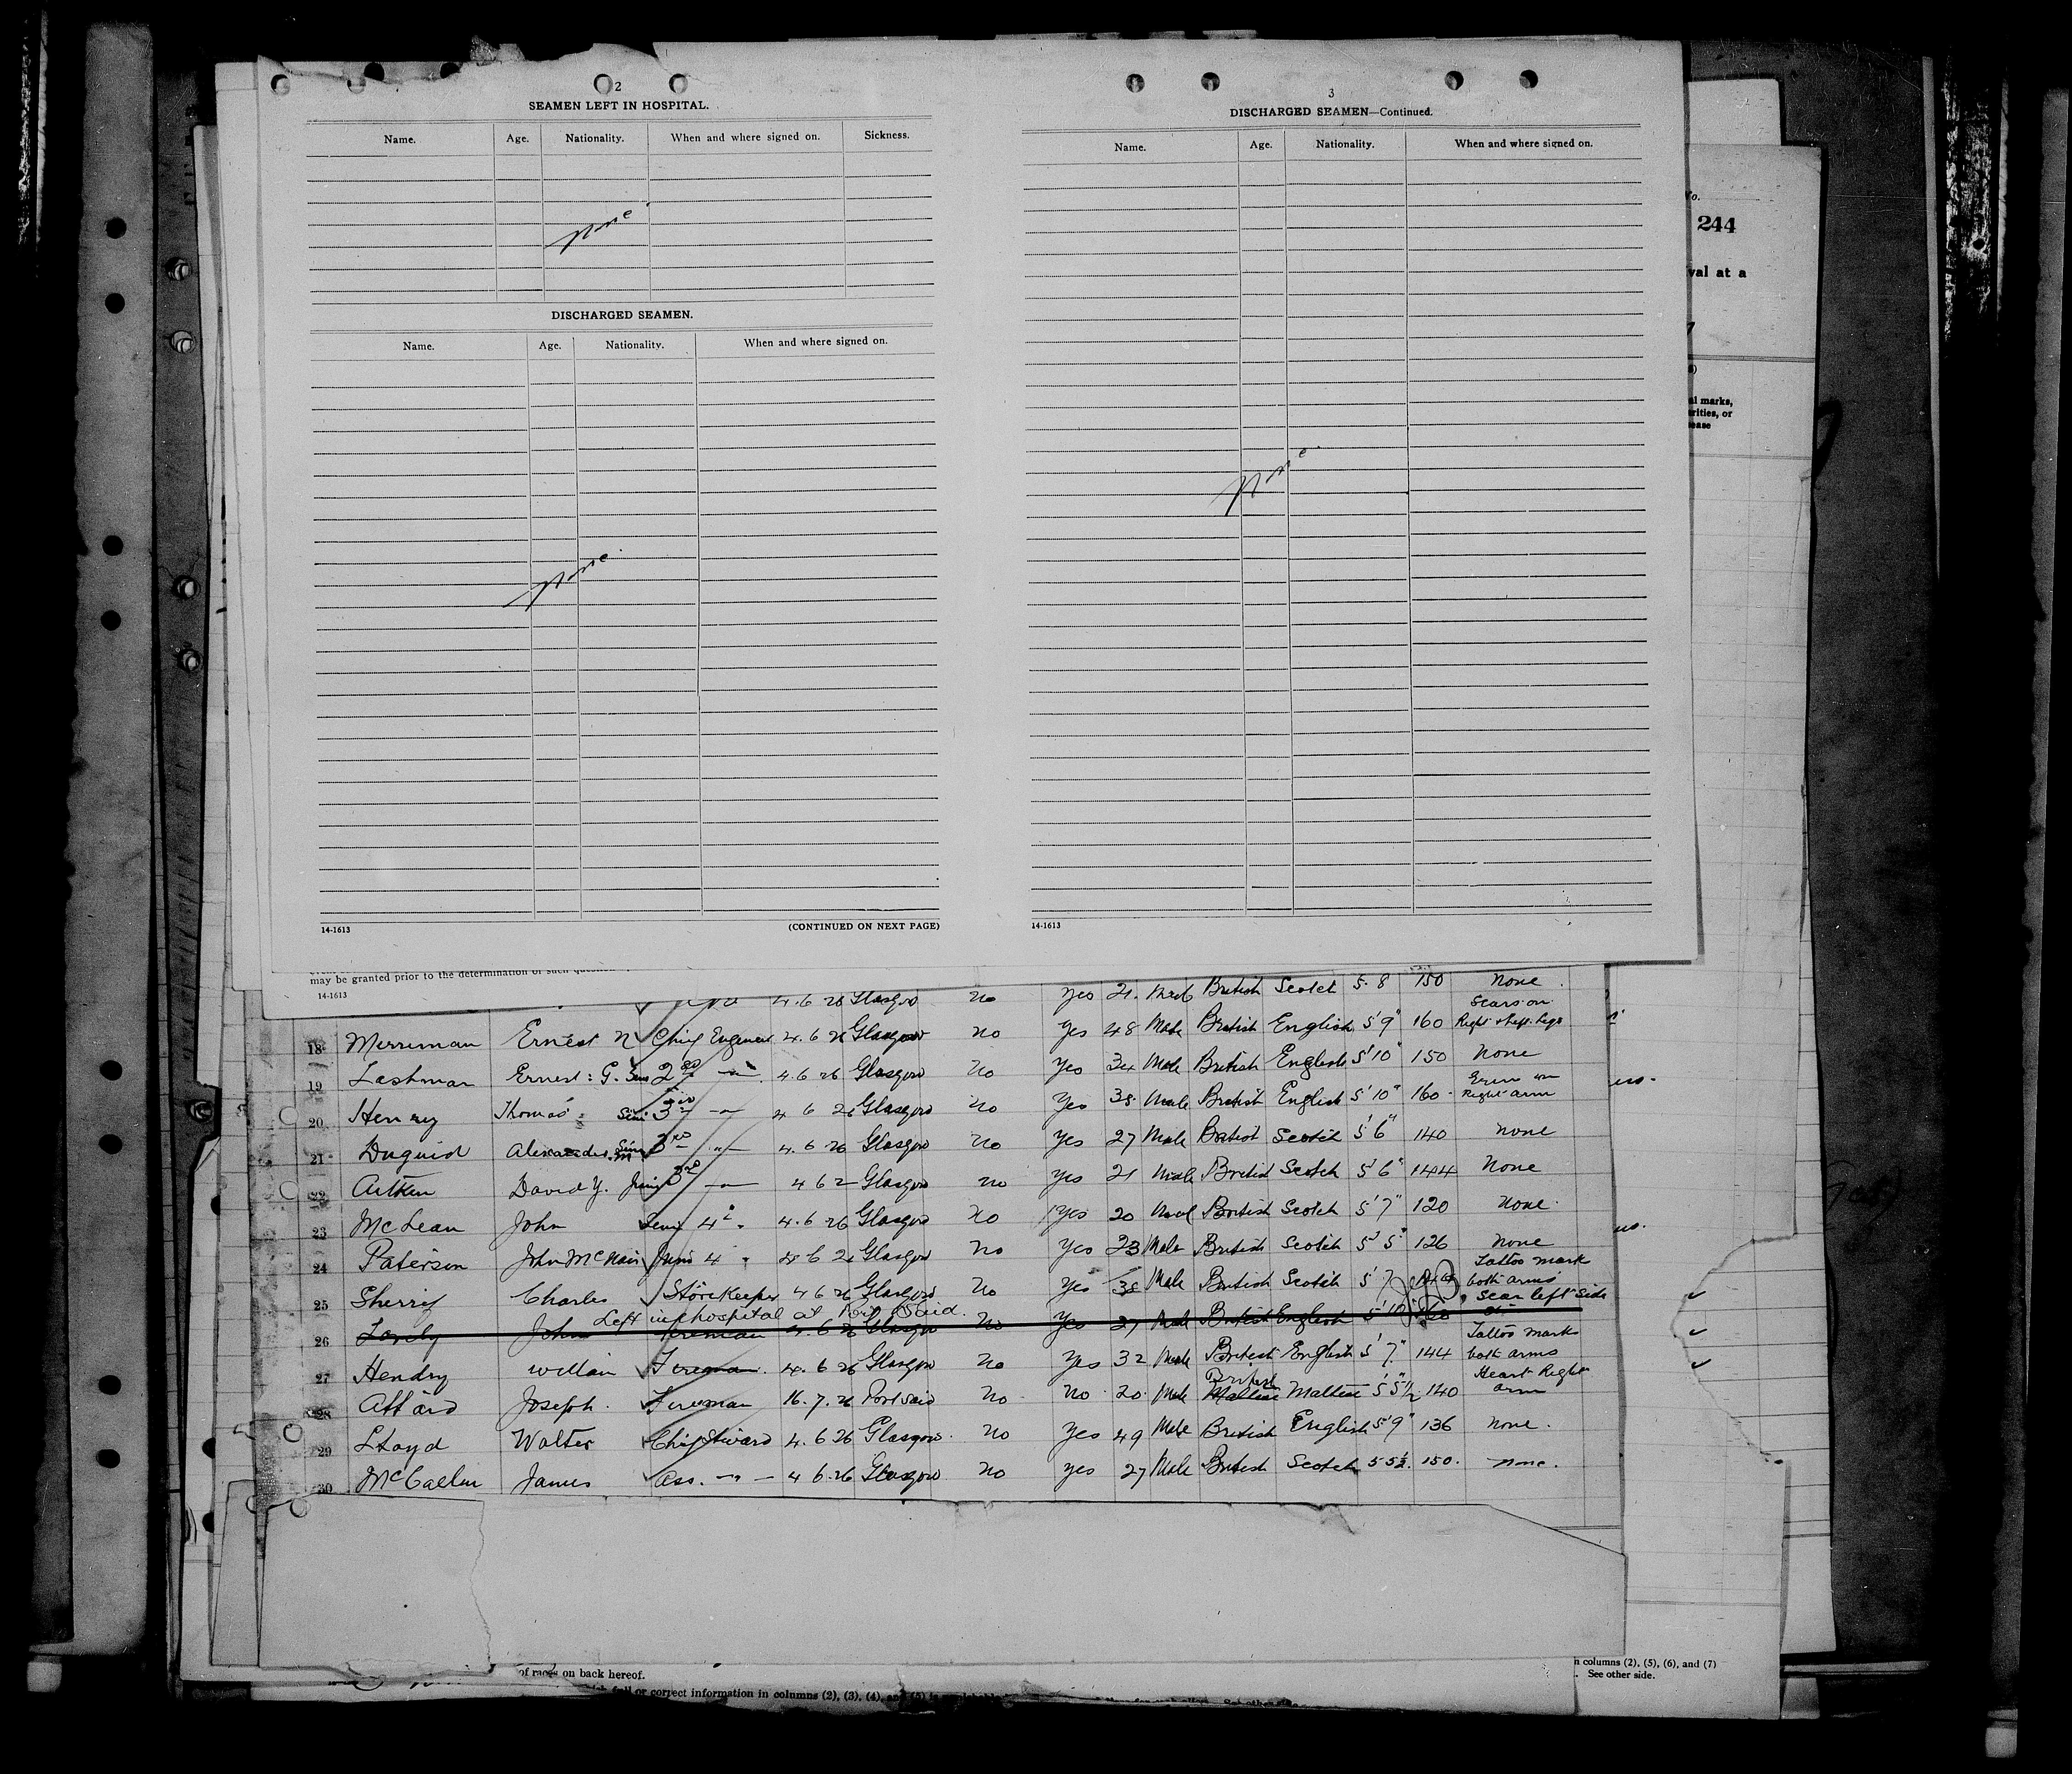 2
SEAMEN LEFT IN HOSPITAL.
Name. Age. Nationality. When and where signed on. Sickness.
None
DISCHARGED SEAMEN.
Name. Age. Nationality. When and where signed on.
None
14-1613 (CONTINUED ON NEXT PAGE)
3
DISCHARGED SEAMEN—Continued.
Name. Age. Nationality. When and where signed on.
None
14-1613
No.
244
val at a
al marks,
rities, or
ease
may be granted prior to the determination of such
14-1613
4.6 26 Glasgow no Yes 21. Male British Scotch 5.8 150 None
Scars on
18 Merriman Ernest N Chief Engineer 4.6 26 Glasgow no Yes 48 Male British English 5'9" 160 Right & Left Legs
19 Lashman Ernest: G. Sen 2nd —"— 4.6 26 Glasgow No Yes 34 Male British English 5'10" 150 None
20 Henry Thomas Sen 3rd —"— 4 6 26 Glasgow No Yes 38 Male British English 5'10" 160 Right arm
21 Duguid Alexander M 3rd —"— 4.6 26 Glasgow No Yes 27 Male British Scotch 5'6" 140 none
22 Aitken David Y. Junr 3rd —"— 4 6 2 Glasgow no Yes 21 Male British Scotch 5'6" 144 None
23 McLean John Senr 4th " 4.6 26 Glasgow No Yes 20 Male British Scotch 5'7" 120 None
24 Paterson John McNair Junr 4 " 4 6 26 Glasgow No Yes 23 Male British Scotch 5'5" 126 None
Tattoo mark
25 Sherry Charles Storekeeper 4 6 26 Glasgow No Yes 38 Male British Scotch 5'7 both arms
Left in hospital at Port Said. Scar left side
26 Lovely John Fireman 4.6 26 Glasgow No Yes 27 Male British English 5'10" 160
Tattoo marks
27 Hendry William Fireman 4.6 26 Glasgow No Yes 32 Male British English 5'7" 144 both arms
British Heart Right
28 Attard Joseph. Fireman 16.7.26 Port said No No 20 Male Maltese Maltese 5'5½ 140 arm
29 Lloyd Walter Chief Steward 4.6 26 Glasgow No Yes 49 Male British English 5'9" 136 none.
30 McCallum James Ass. —"— 4 6.26 Glasgow no yes 27 Male British Scotch 5 5½. 150. none.
of races on back hereof.
full or correct information in columns (2), (3), (4), and (5)
n columns (2), (5), (6), and (7)
. See other side.